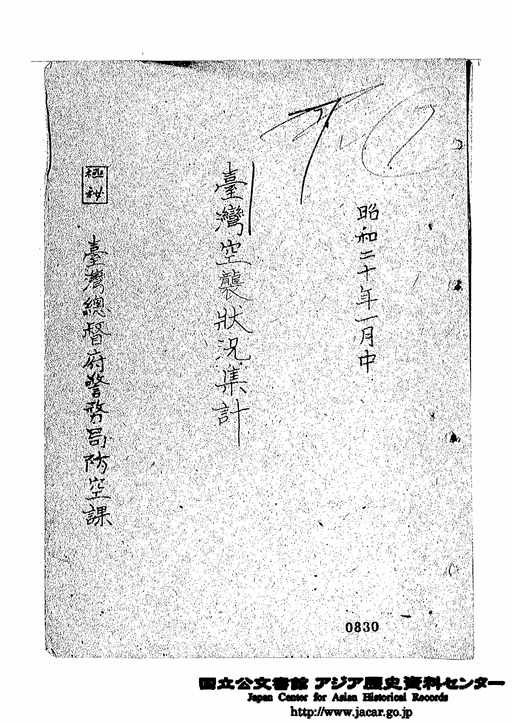 昭和二十年一月中
臺灣空襲狀況集計
極秘
臺灣總督府警務局防空課
0830
国立公文書館 アジア歴史資料センター
Japan Center for Asian Historical Records
http://www.jacar.go.jp